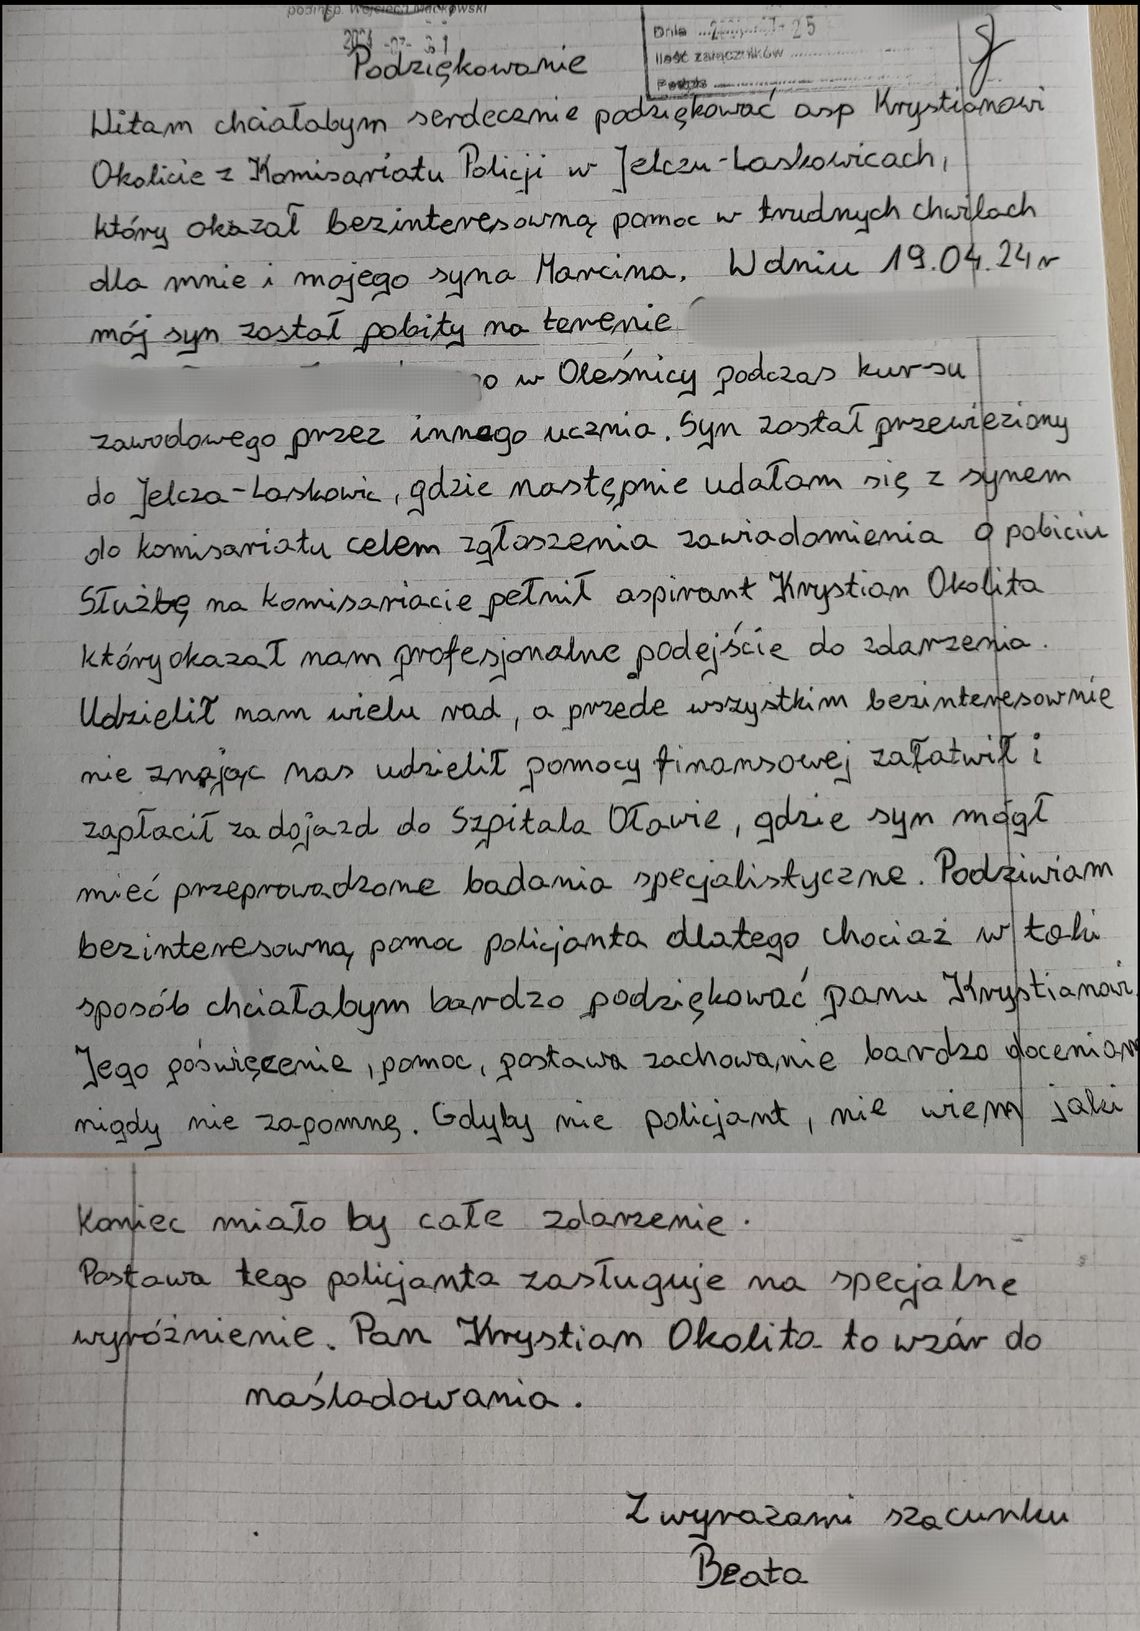 podinsp. Wojciech Maćkowski
Dnia
25
Ilość załączników
Podpis
Podziękowanie
Witam chciałabym serdecznie podziękować asp Krystianowi
Okolicie z Komisariatu Policji w Jelczu-Laskowicach,
który okazał bezinteresowną pomoc w trudnych chwilach
dla mnie i mojego syna Marcina. W dniu 19.04.24r
mój syn został pobity na terenie
go w Oleśnicy podczas kursu
zawodowego przez innego ucznia. Syn został przewieziony
do Jelcza-Laskowic, gdzie następnie udałam się z synem
do komisariatu celem zgłoszenia zawiadomienia o pobiciu
Służbę na komisariacie pełnił aspirant Krystian Okolita
który okazał nam profesjonalne podejście do zdarzenia.
Udzielił nam wielu rad, a przede wszystkim bezinteresownie
nie znając nas udzielił pomocy finansowej załatwił i
zapłacił za dojazd do Szpitala Oławie, gdzie syn mógł
mieć przeprowadzone badania specjalistyczne. Podziwiam
bezinteresowną pomoc policjanta dlatego chociaż w taki
sposób chciałabym bardzo podziękować panu Krystianowi.
Jego poświęcenie, pomoc, postawa zachowanie bardzo doceniam
nigdy nie zapomnę. Gdyby nie policjant, nie wiem jaki
koniec miało by całe zdarzenie.
Postawa tego policjanta zasługuje na specjalne
wyróżnienie. Pan Krystian Okolita to wzór do
naśladowania.
Z wyrazami szacunku
Beata